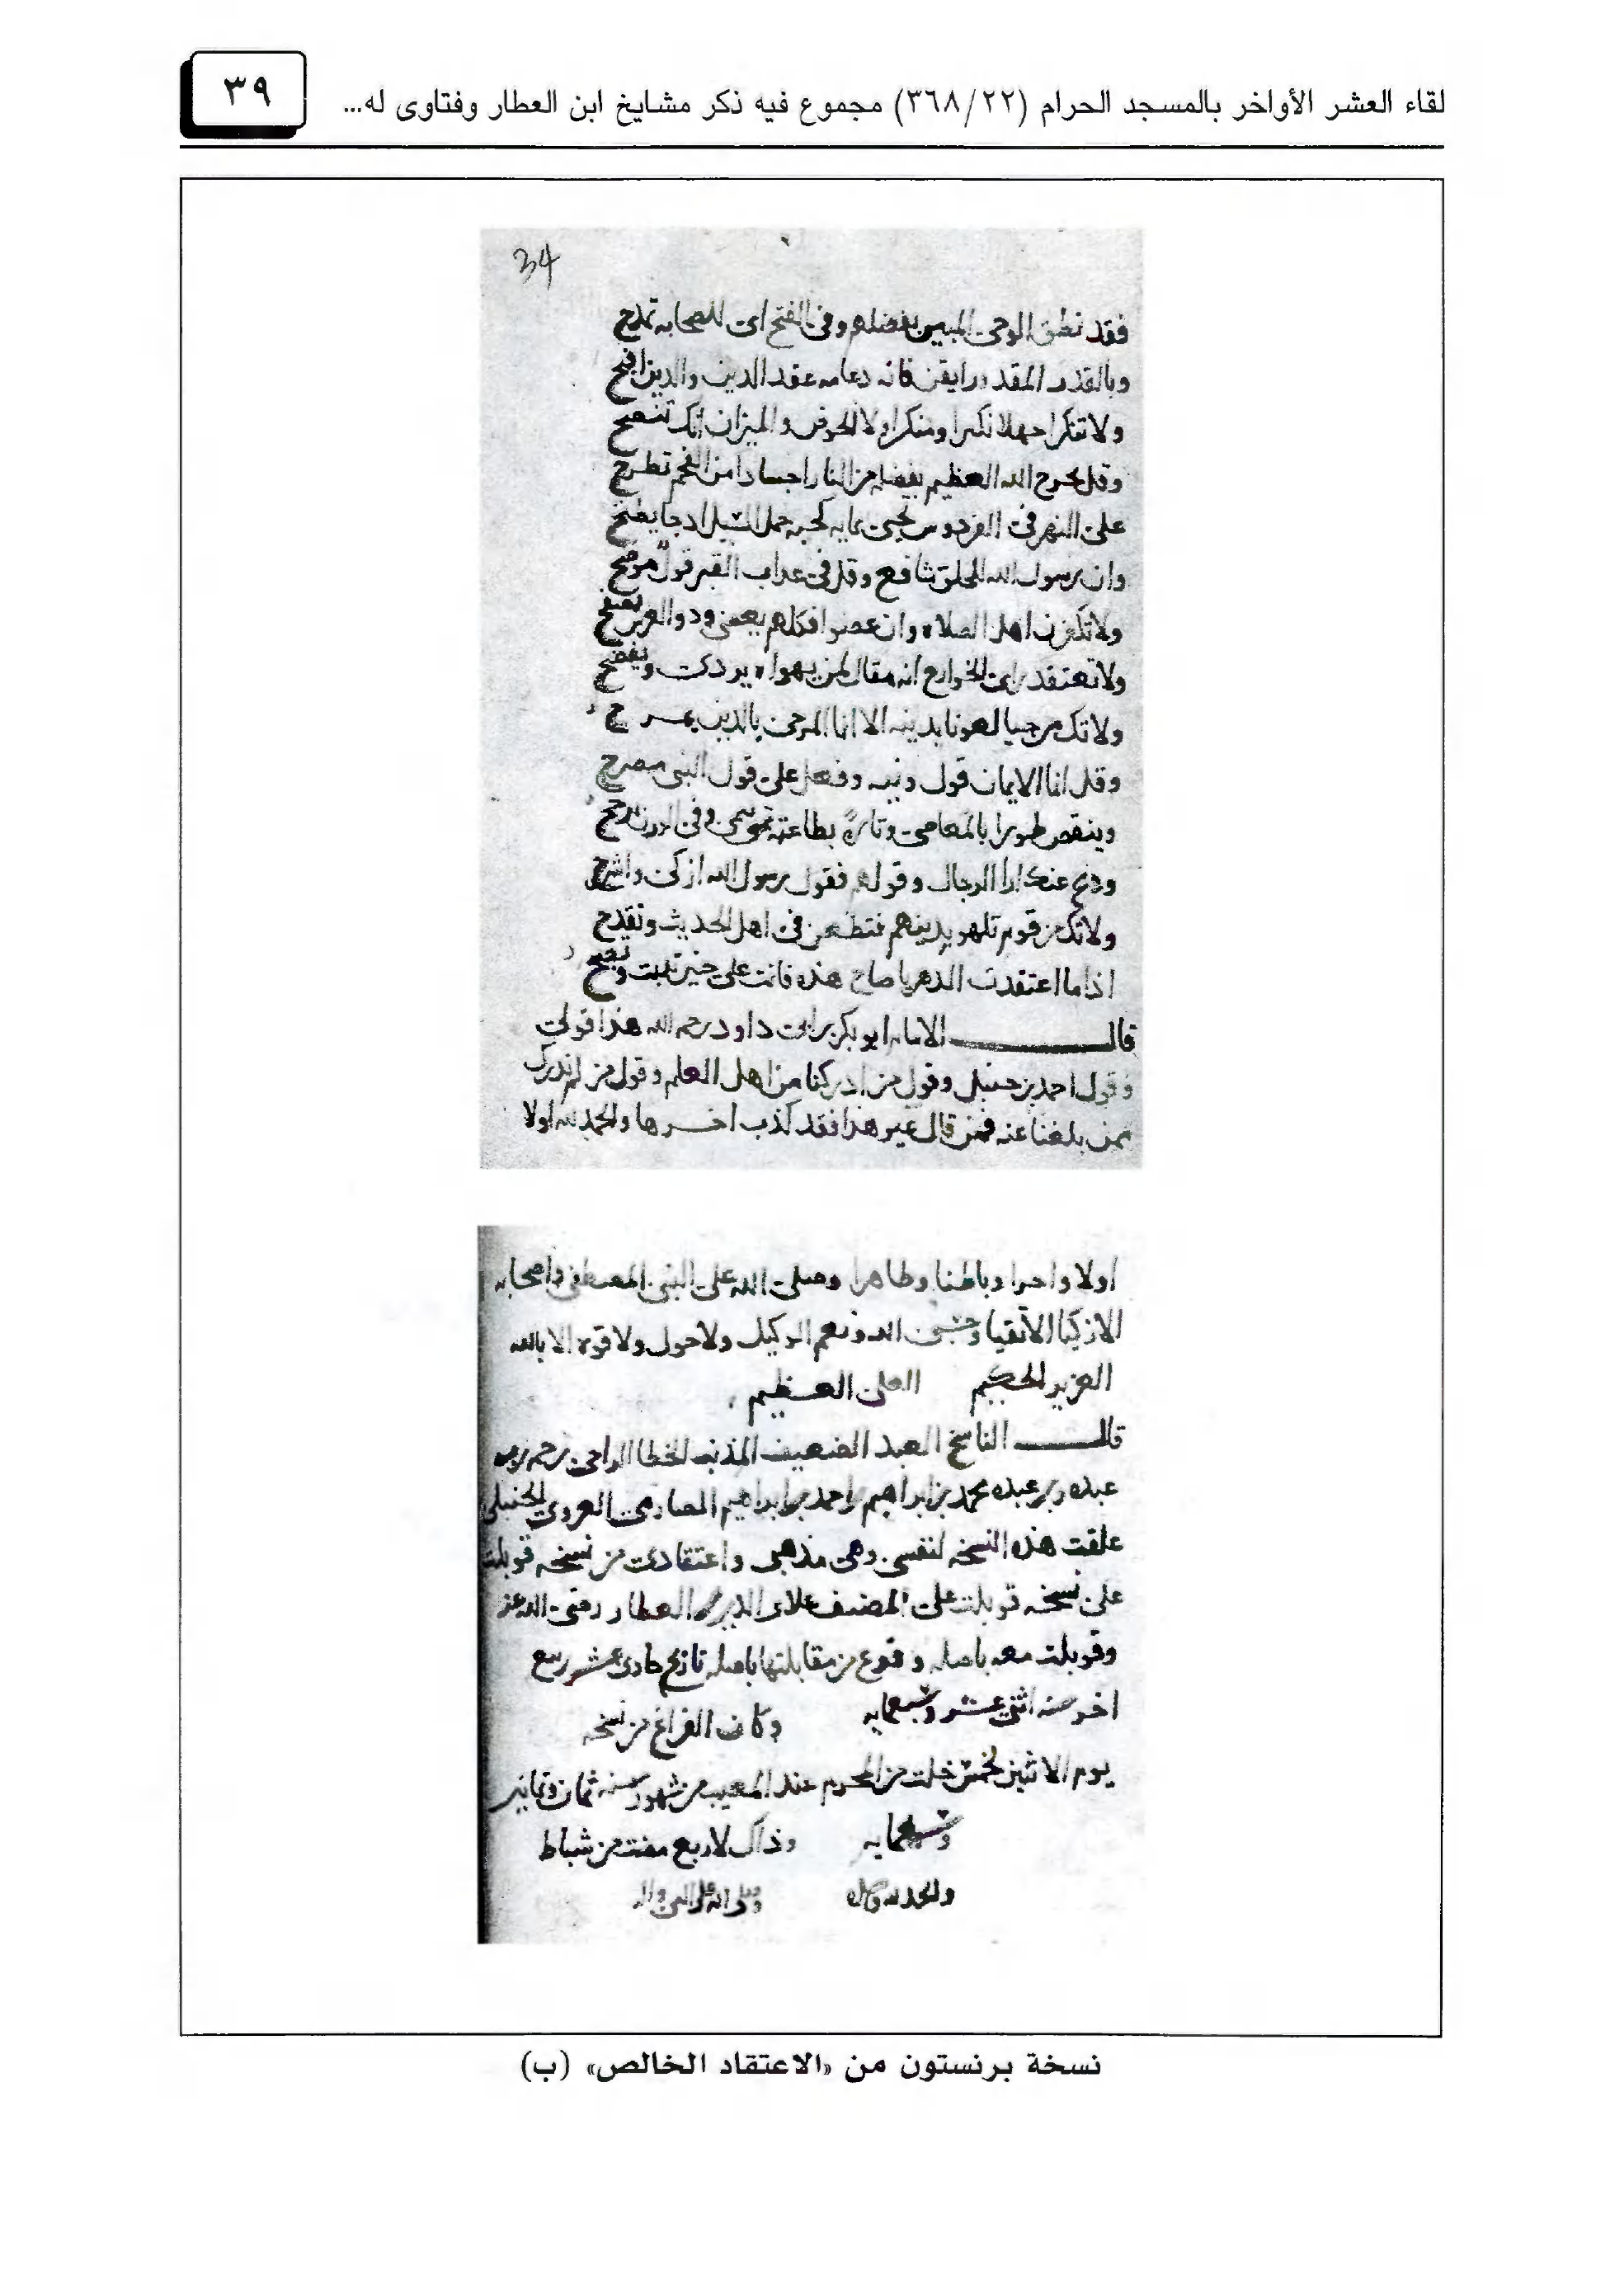 لقاء العشر الأواخر بالمسجد الحرام (٣٦٨/٢٢) مجموع فيه ذكر مشايخ ابن العطار وفتاوى له...
٣٩
34
فقد نطق الوحي المبين بفضلهم وفي الفتح اى للصحابه تمدح
وبالقدر المقدور ايقن فانه دعامه عقد الدين والدين افيح
ولا تنكرا جهلا نكيرا ومنكرا ولا الحوض والميزان انك تنصح
وقل يخرج الله العظيم بفضله من النار اجسادا من الفحم تطرح
على النهر في الفردوس تحيى بمايه كحبه حمل السيل اذ جا يطفح
وان رسول الله للخلق شافع وقل في عذاب القبر قول موضح
ولا تكفرن اهل الصلاه وان عصوا فكلهم يعصى وذو العرش يصفح
ولا تعتقد راى الخوارج انه مقال لمن يهواه يردى ويفضح
ولا تك مرجيا لعوبا بدينه الا انما المرجى بالدين يمزح
وقل انما الايمان قول ونيه وفعل على قول النبى مصرح
وينقص طورا بالمعاصى وتارة بطاعته ينمى وفى الوزن يرجح
ودع عنك ارا الرجال وقولهم فقول رسول الله ازكى واشرح
ولا تك من قوم تلهو بدينهم فتطعن فى اهل الحديث وتقدح
اذا ما اعتقدت الدهر يا صاح هذه فانت على خير تبيت وتصبح
قال الامام ابو بكر بن ابى داود رحمه الله هذا قولى
وقول احمد بن حنبل وقول من ادركنا من اهل العلم وقول من لم ندرك
ممن بلغنا عنه فمن قال غير هذا فقد كذب اخرها والحمد لله اولا
اولا واخرا وباطنا وظاهرا وصلى الله على النبى المصطفى واصحابه
الازكيا الاتقيا وحسبى الله ونعم الوكيل ولا حول ولا قوه الا بالله
العزيز الحكيم العلى العظيم
قال الناسخ العبد الضعيف المذنب الخطا الراجى رحمه ربه
عبده وبن عبده محمد بن ابراهيم بن احمد بن ابراهيم الحنبلى
علقت هذه النسخه لنفسى وهى مذهبى واعتقادى من نسخه قوبلت
على نسخه قوبلت على المصنف علاى الدين بن العطار رضى الله عنه
وقوبلت معه باصله وقوع من مقابلتها باصله تاريخ حادى عشر ربيع
اخر سنه اثنى عشر وسبعمايه وكان الفراغ من نسخه
يوم الاثنين لخمس خلت من المحرم عند المغيب من شهور سنه ثمان وثمانين
وسبعمايه وذاك لاربع مضت من شباط
والحمد لله
نسخة برنستون من «الاعتقاد الخالص» (ب)